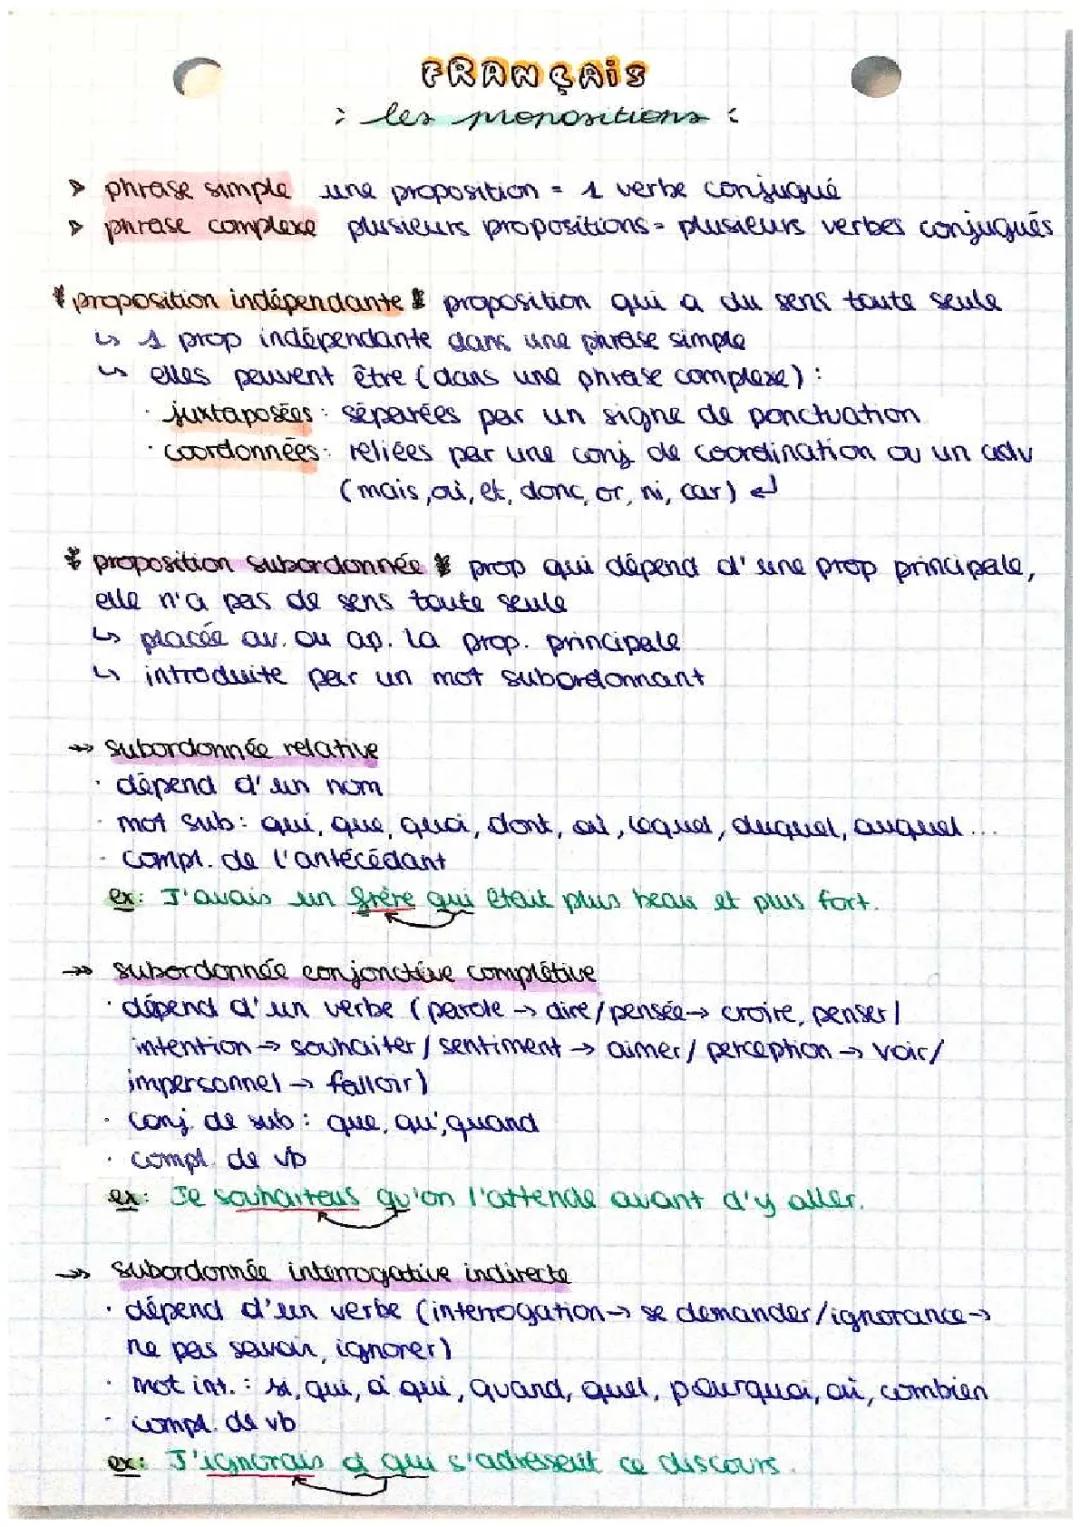 FRANÇAIS
: les propositions :
> phrase simple une proposition = 1 verbe conjugué
> phrase complexe plusieurs propositions = plusieurs verbes conjugués
* proposition indépendante * proposition qui a du sens toute seule
↳ 1 prop indépendante dans une phrase simple
↳ elles peuvent être (dans une phrase complexe) :
· juxtaposées : séparées par un signe de ponctuation
· coordonnées : reliées par une conj de coordination ou un adv
(mais, ou, et, donc, or, ni, car) ↵
* proposition subordonnée * prop qui dépend d'une prop principale,
elle n'a pas de sens toute seule
↳ placée av. ou ap. la prop. principale
↳ introduite par un mot subordonnant
->> subordonnée relative
· dépend d'un nom
· mot sub : qui, que, quoi, dont, où, lequel, duquel, auquel ...
· compl. de l'antécédant
ex : J'avais un frère qui était plus beau et plus fort.
->> subordonnée conjonctive complétive
· dépend d'un verbe (parole -> dire / pensée -> croire, penser /
intention -> souhaiter / sentiment -> aimer / perception -> voir /
impersonnel -> falloir)
· conj. de sub : que, qu', quand
· compl. de vb
ex : Je souhaiterais qu'on l'attende avant d'y aller.
->> subordonnée interrogative indirecte
· dépend d'un verbe (interrogation -> se demander / ignorance ->
ne pas savoir, ignorer)
· mot int. : si, qui, à qui, quand, quel, pourquoi, où, combien
· compl. de vb
ex : J'ignorais à qui s'adressait ce discours.